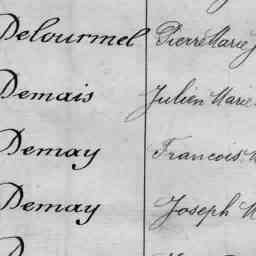 Delourmel Pierre Marie J
Demais Julien Marie
Demay Francois M
Demay Joseph M
D